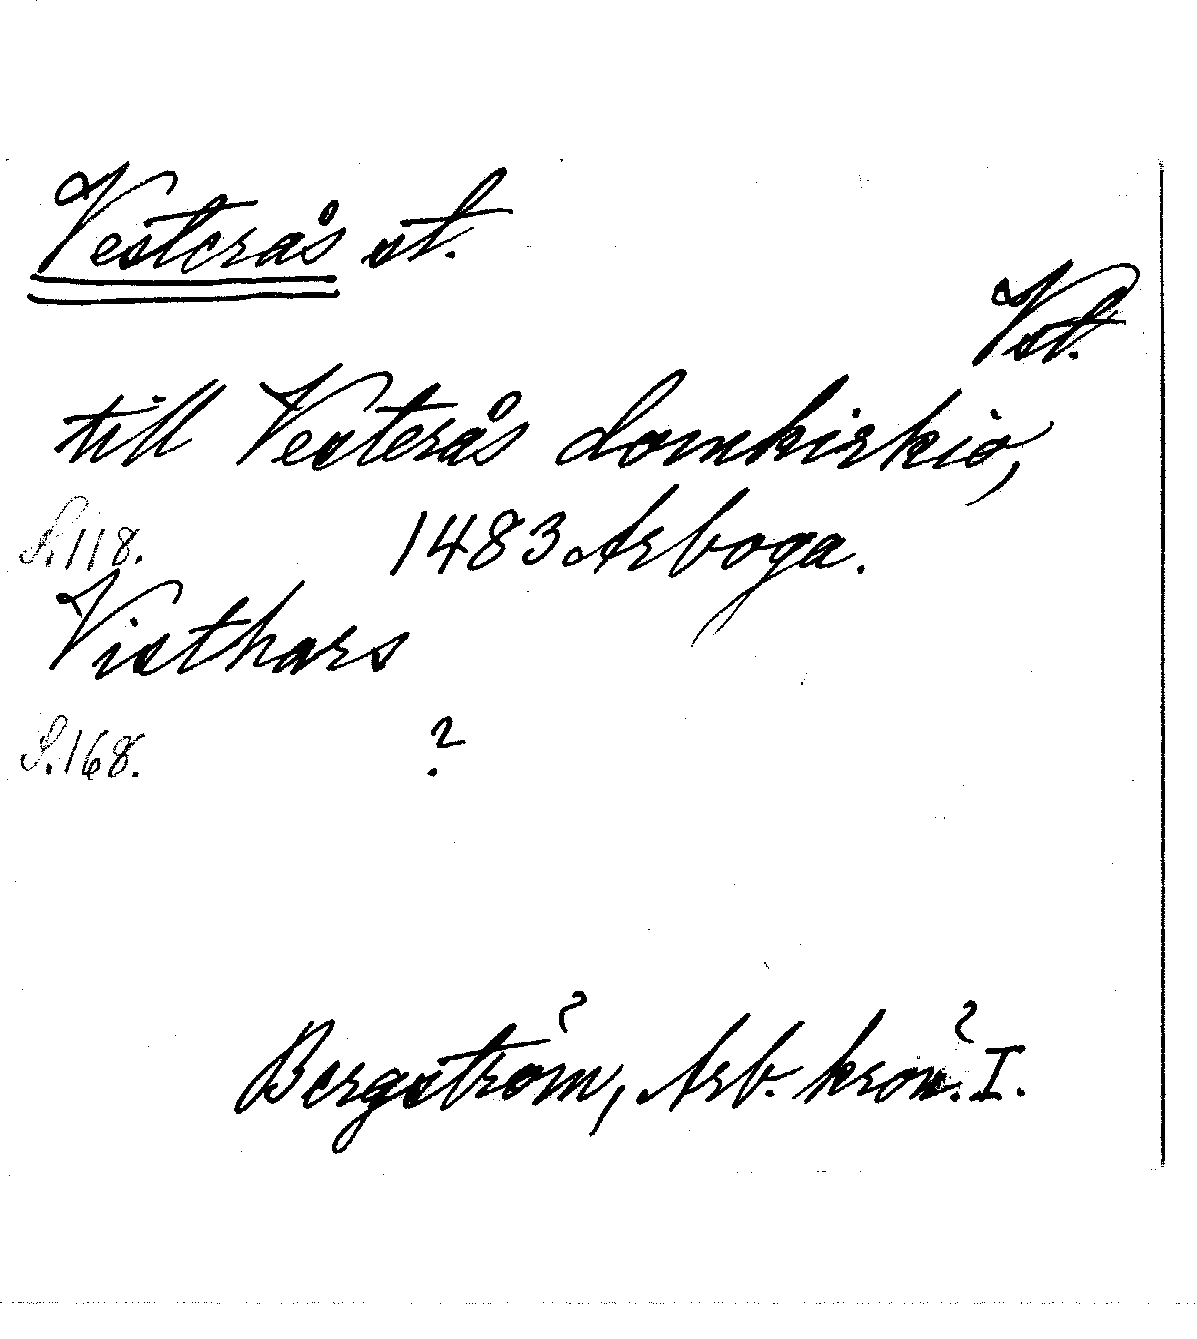 Vesterås st.
Vst.
till Vesterås domkirkio,
S.118. 1483 Arboga.
Visthars
S.168. ?
Bergström, Arb. krön. I.